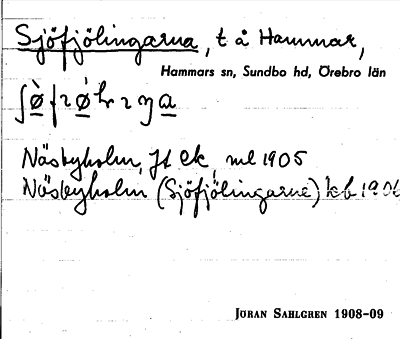 Sjöfjölingarna, t å Hammar,
Hammars sn, Sundbo hd, Örebro län
Näsbyholm, Jt ek, ml 1905
Näsbyholm (Sjöfjölingarne) kb 1906
JÖRAN SAHLGREN 1908–09